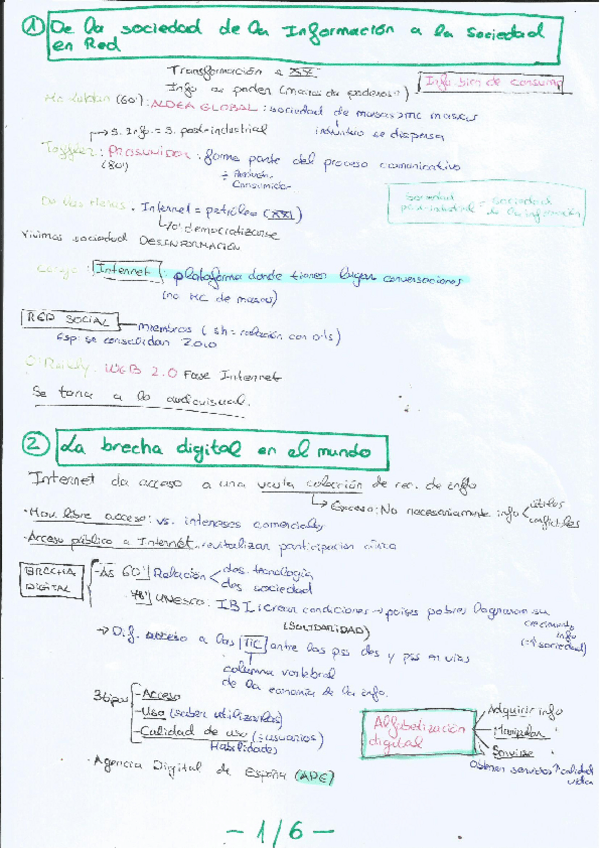 ① De la sociedad de la Información a la sociedad
en Red
Transformación s. XX:
Info es poder (manos de poderosos)
Info bien de consumo
(60'): ALDEA GLOBAL: sociedad de masas > mc masas
individuo se dispersa
→ S. Info. = S. post-industrial
PROSUMIDOR: forma parte del proceso comunicativo
(80')
Consumidor
Sociedad = sociedad
post-industrial de la información
Internet = petróleo (XXI)
democratizarse
Vivimos sociedad DESINFORMACIÓN
Internet: plataforma donde tienen lugar conversaciones
(no MC de masas)
RED SOCIAL miembros (sh = relación con otrs)
Esp: se consolidan 2010
WEB 2.0 Fase Internet
Se torna a lo audiovisual.
② La brecha digital en el mundo
Internet da acceso a una vasta colección de rec. de info
→ Exceso: No necesariamente info útiles
confiables
· Mov. libre acceso: vs. intereses comerciales
· Acceso público a Internet revitalizar participación cívica
BRECHA
DIGITAL
Años 60' Relación des. tecnología
des. sociedad
78' UNESCO: IBI crear condiciones → países pobres lograran su
crecimiento
info
(SOLIDARIDAD)
(= social)
→ Dif. acceso a las TIC entre los pss des y pss en vías
columna vertebral
de la economía de la info.
3 tipos
- Acceso
- Uso (saber utilizarlas)
- Calidad de uso (≠ usuarios)
Habilidades
Alfabetización
digital
Adquirir info
Manipular "
Servirse "
Obtener servicios ↑ calidad
vida
· Agencia Digital de España (ADE)
- 1/6 -